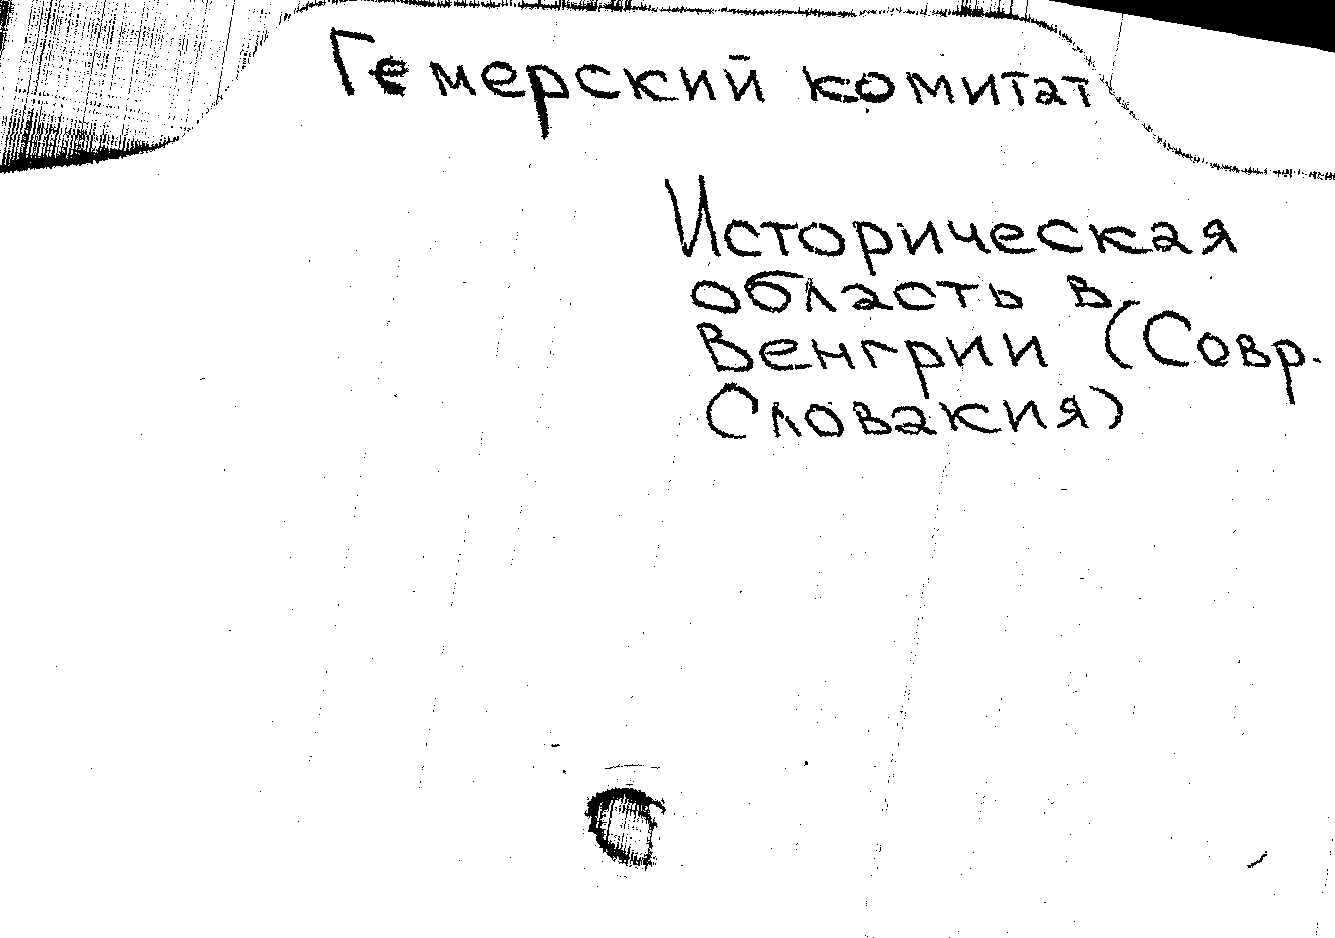 Гемерский комитат
Историческая
область в
Венгрии (Совр.
Словакия)